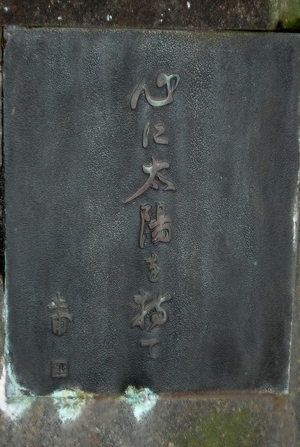 心に太陽を持て